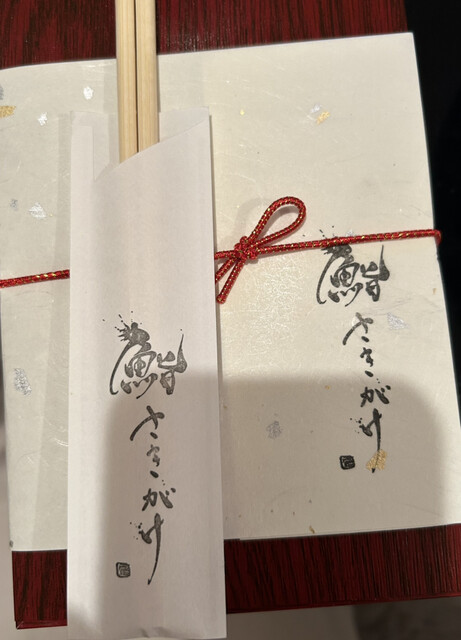 鮨
さきがけ
鮨
さきがけ